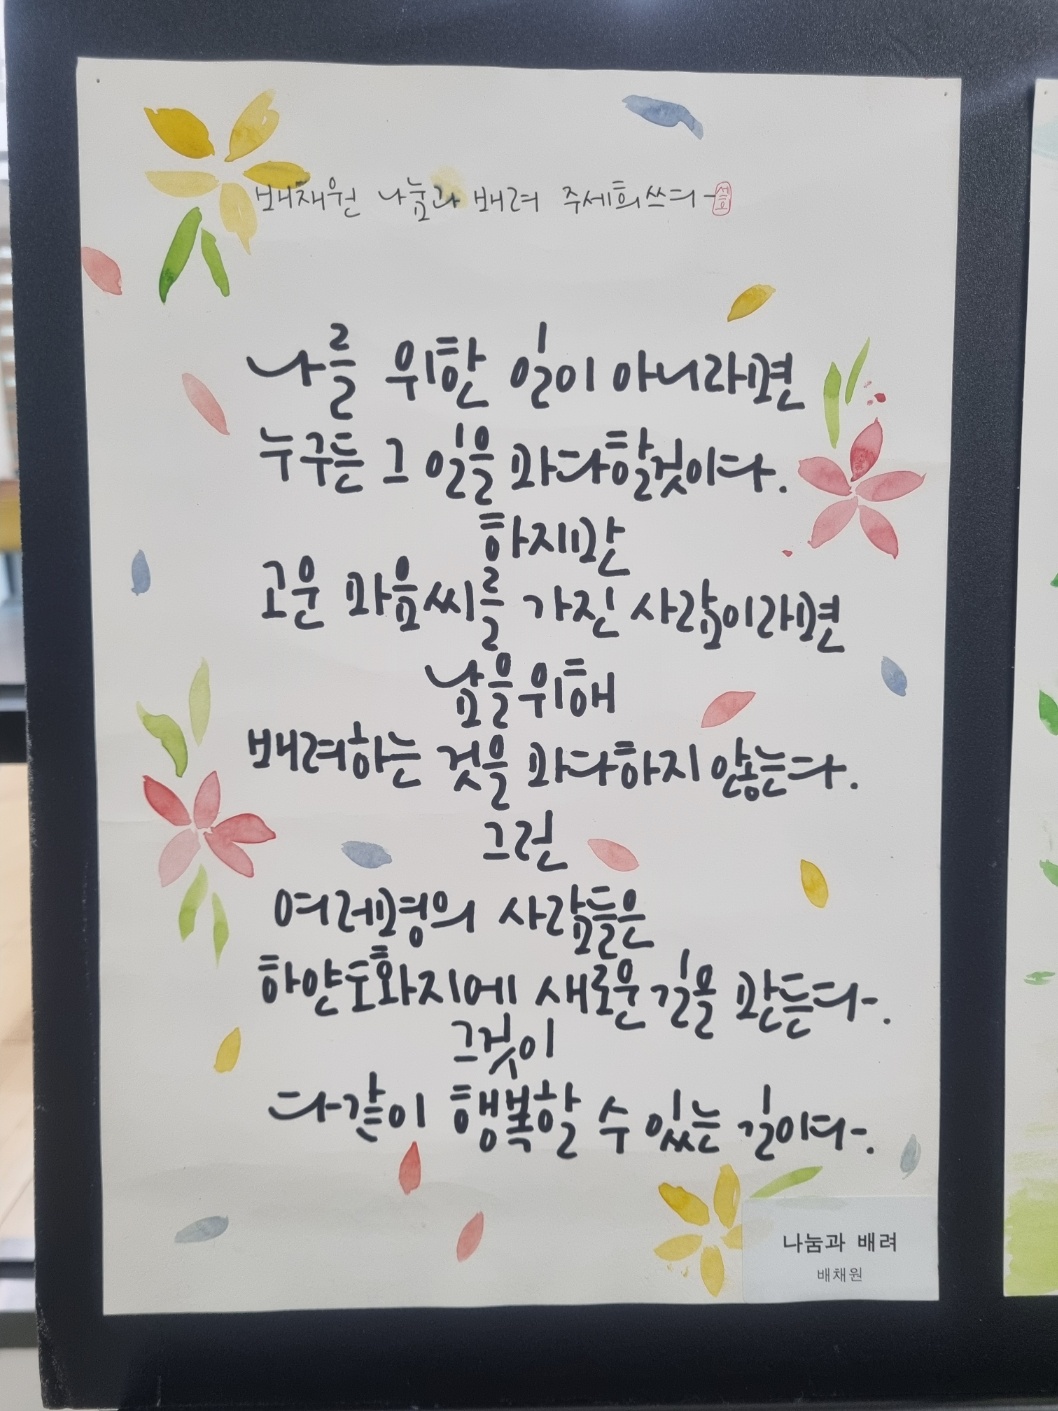 배채원 나눔과 배려 주세희쓰다
나를 위한 일이 아니라면
누구든 그 일을 마다할것이다.
하지만
고운 마음씨를 가진 사람이라면
남을위해
배려하는 것을 마다하지 않는다.
그런
여러명의 사람들은
하얀도화지에 새로운길을 만든다.
그것이
다같이 행복할 수 있는 길이다.
나눔과 배려
배채원